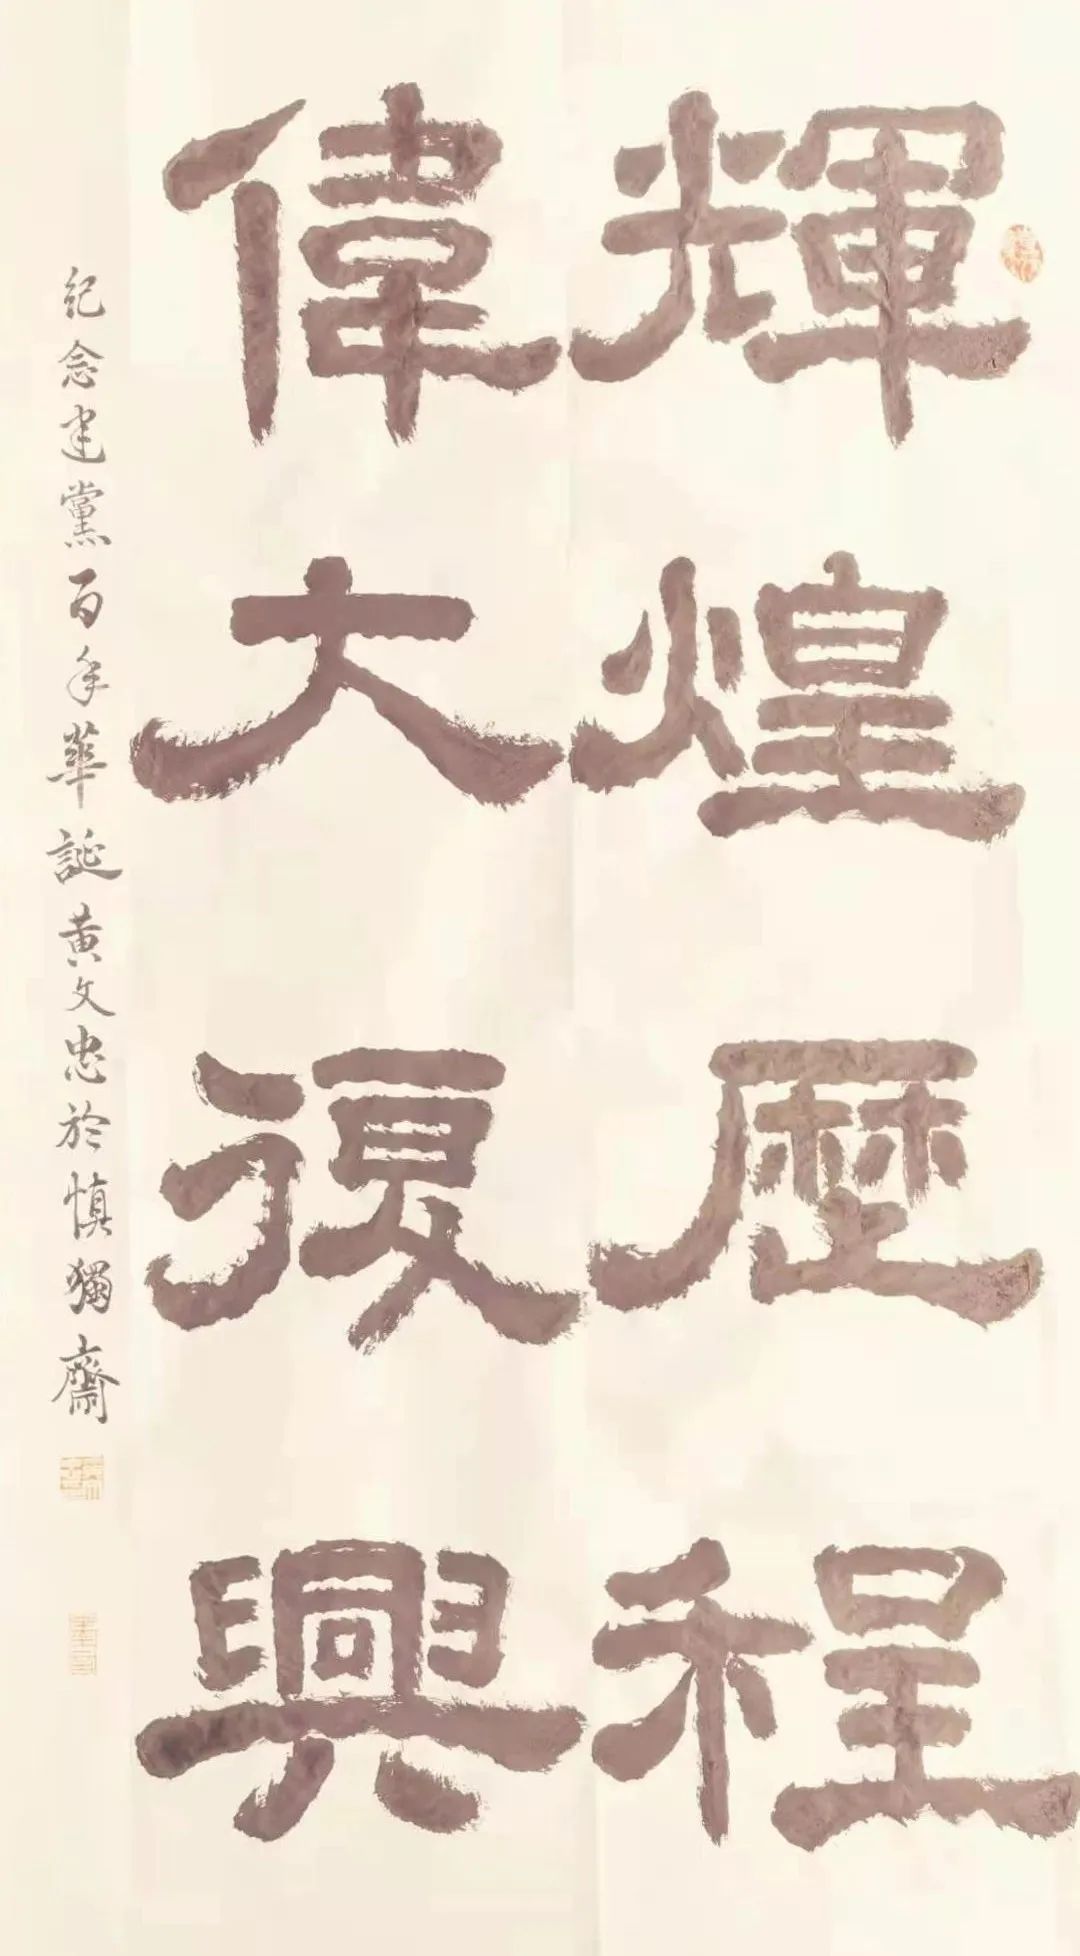 輝煌歷程
偉大復興
纪念建黨百年華誕黄文忠於慎獨齋